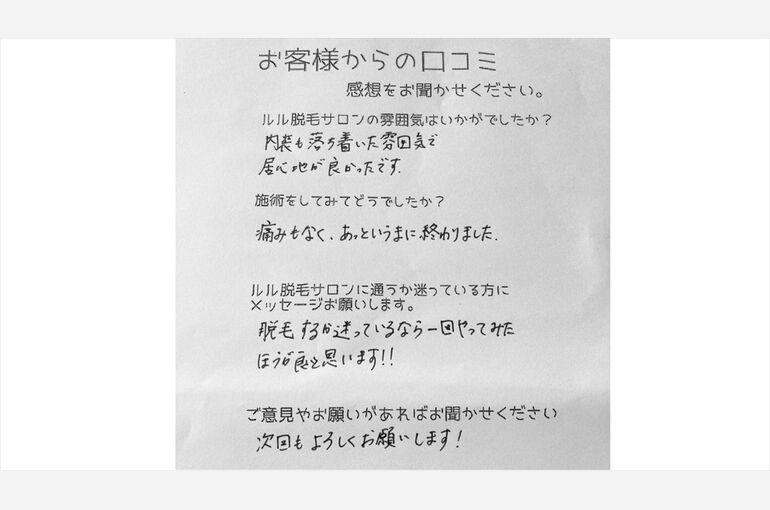 お客様からの口コミ
感想をお聞かせください。
ルル脱毛サロンの雰囲気はいかがでしたか？
内装も落ち着いた雰囲気で
居心地が良かったです.
施術をしてみてどうでしたか？
痛みもなく、あっというまに終わりました.
ルル脱毛サロンに通うか迷っている方に
メッセージお願いします。
脱毛するか迷っているなら一回やってみた
ほうが良いと思います!!
ご意見やお願いがあればお聞かせください
次回もよろしくお願いします!